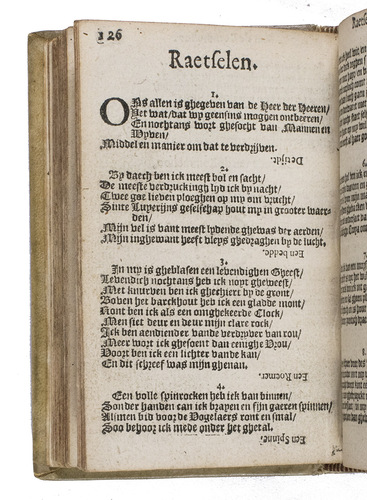 126
Raetselen.
1.
ONs allen is ghegeven van de Heer der Heeren/
Yet wat/dat wy geensins moghen ontbeeren/
En nochtans wort ghesocht van Mannen en
Wyven/
Middel en manier om dat te verdrijven.
De tijdt.
2.
By daech ben ick meest vol en sacht/
De meeste verdruckingh lijd ick by nacht/
Twee goe lieven ploeghen op my om vrucht/
Sinte Luyerijns geselschap hout my in grooter waer-
den/
Mijn vel is vant meest lydende ghewas der aerden/
Mijn inghewant heeft vleys ghedraghen by de lucht.
Een bedde.
3.
In my is gheblasen een levendighen Gheest/
Levendich nochtans heb ick noyt gheweest/
Met knurven ben ick gheciert by de gront/
Boven het barckhout heb ick een gladde mont/
Ront ben ick als een omghekeerde Clock/
Men siet deur en deur mijn clare rock/
Ick ben aendiender vande verdryver van rou/
Meer wort ick ghesoent dan eenighe Vrou/
Voort ben ick een lichter vande kan/
En dit schreef was mijn ghenan.
Een Roemer.
4.
Een volle spinrocken heb ick van binnen/
Sonder handen can ick brayen en fijn garren spinnen/
Alsmen bid voor de Vogelaers ront en smal/
Soo behoor ick mede onder het ghetal.
Een Spinne.